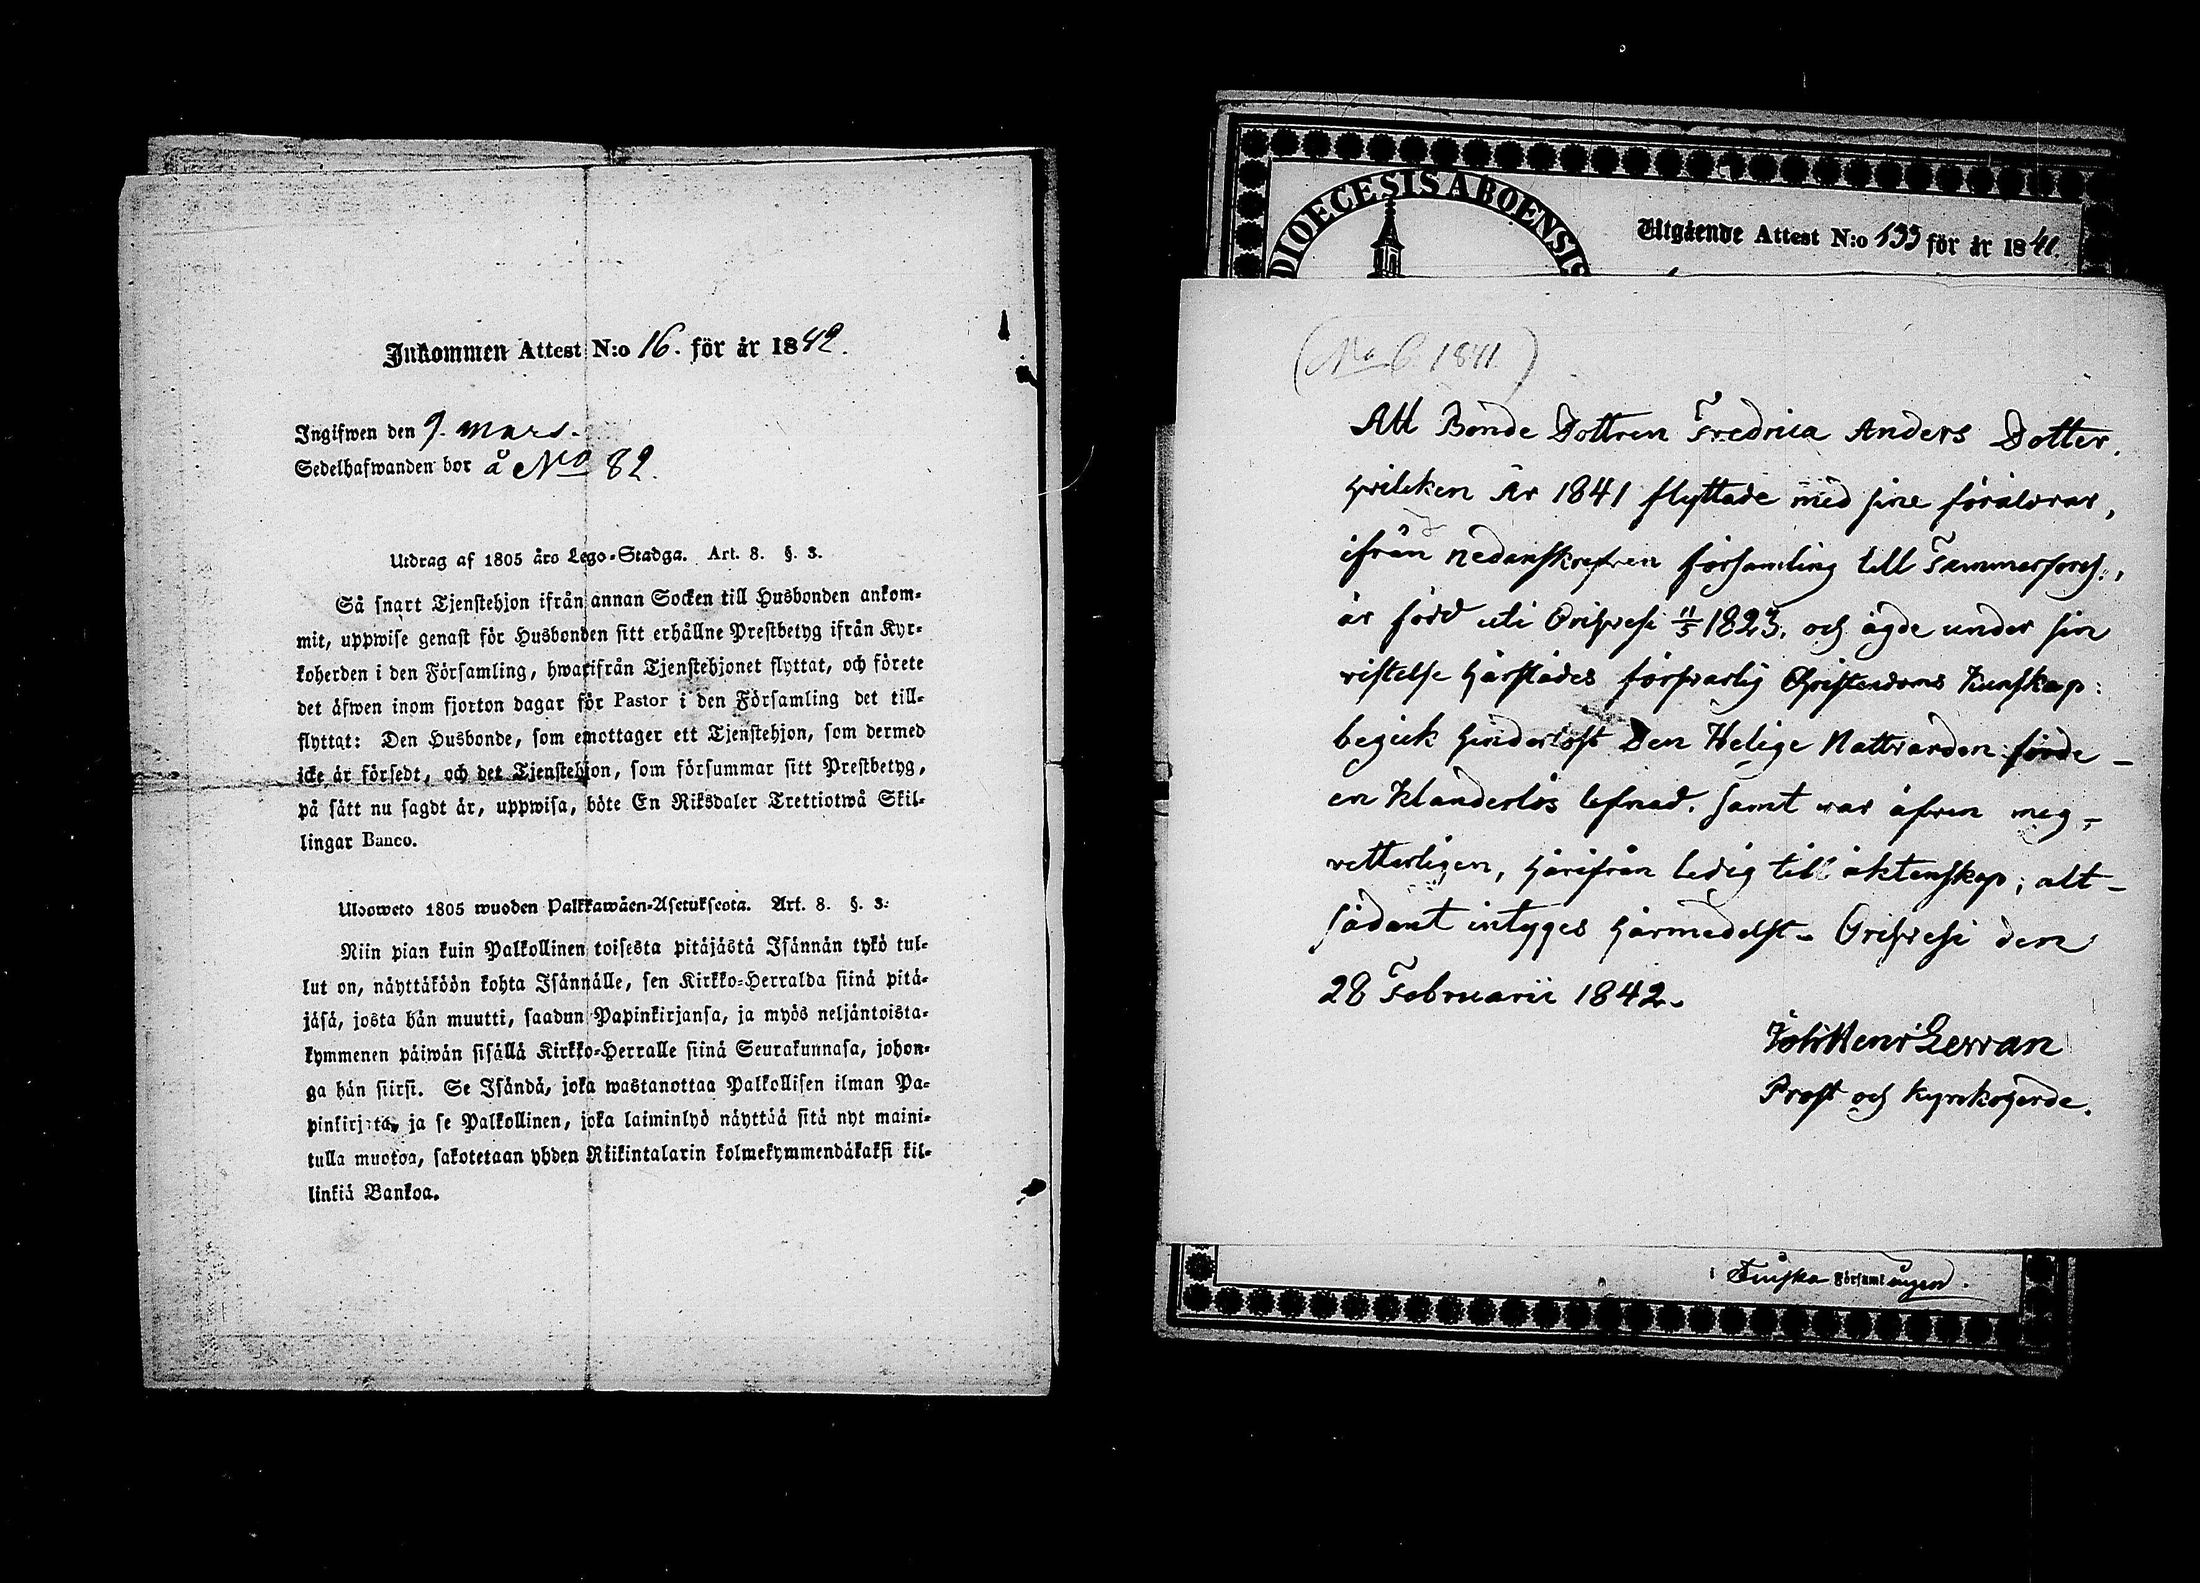 Inkommen Attest N:o 16. för år 1842.
Ingifwen den 9. mars.
Sedelhafwanden bor å No 82.
Utdrag af 1805 års Lego-Stadga. Art. 8. §. 3.
Så snart Tjenstehjon ifrån annan Socken till Husbonden ankom-
mit, uppwise genast för Husbonden sitt erhållne Prestbetyg ifrån Kyr-
koherden i den Församling, hwarifrån Tjenstehjonet flyttat, och förete
det äfwen inom fjorton dagar för Pastor i den Församling det till-
flyttat: Den Husbonde, som emottager ett Tjenstehjon, som dermed
icke är försedt, och det Tjenstehjon, som försummar sitt Prestbetyg,
på sätt nu sagdt är, uppwisa, böte En Riksdaler Trettiotwå Skil-
lingar Banco.
Ulosweto 1805 wuoden Palkkawäen-Asetuksesta. Art. 8. §. 3.
Niin pian kuin Palkollinen toisesta pitäjästä Isännän tykö tul-
lut on, näyttäköön kohta Isännälle, sen Kirkko-Herralda siinä pitä-
jäsä, josta hän muutti, saadun Papinkirjansa, ja myös neljäntoista-
kymmenen päiwän sisällä Kirkko-Herralle siinä Seurakunnasa, johon-
ga hän siirsi. Se Isändä, joka wastanottaa Palkollisen ilman Pa-
pinkirjata, ja se Palkollinen, joka laiminlyö näyttää sitä nyt maini-
tulla muotoa, sakotetaan yhden Riikintalarin kolmekymmendäkaksi kil-
linkiä Bankoa.
DIOECESIS ABOENSIS
Utgående Attest N:o 133 för år 1841.
(No 6. 1841.)
Att Bonde Dottren Fredrica Anders Dotter,
hvilcken År 1841 flyttade med sine föräldrar,
ifrån nedanskrefven församling till Tammerfors,
är född uti Orihvesi 11/5 1823, och ägde under sin
vistelse härstädes försvarlig Christendoms Kunskap:
begick hinderlöst Den Helige Nattvarden: förde
en Klanderlös lefnad. samt var äfven mig,
vetterligen, härifrån ledig till äktenskap; alt-
sådant intygges härmedelst. Orihvesi den
28 Februarii 1842.
Joh: Henr: Lerran
Prost och Kyrckoherde.
i Finska Församlingen.